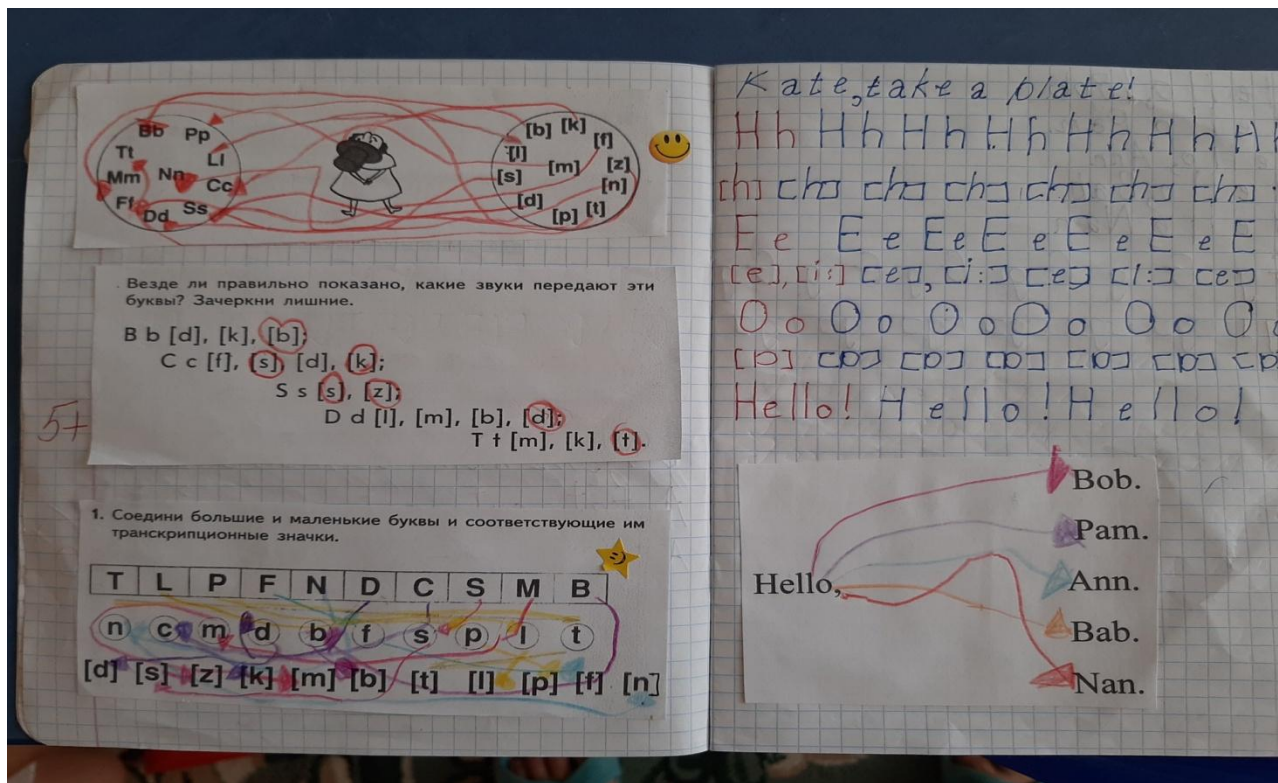 Bb Pp
Tt Ll
Mm Nn Cc
Ff Dd Ss
[b] [k]
[l] [f]
[s] [m] [z]
[n]
[d] [p] [t]
Везде ли правильно показано, какие звуки передают эти
буквы? Зачеркни лишние.
B b [d], [k], [b];
C c [f], [s], [d], [k];
S s [s], [z];
D d [l], [m], [b], [d];
T t [m], [k], [t].
5+
1. Соедини большие и маленькие буквы и соответствующие им
транскрипционные значки.
T L P F N D C S M B
n c m d b f s p l t
[d] [s] [z] [k] [m] [b] [t] [l] [p] [f] [n]
Kate, take a plate!
H h H h H h H h H h H h H
[h] [h] [h] [h] [h] [h] [h]
E e E e E e E e E e E e E
[e], [i:] [e], [i:] [e] [i:] [e]
O o O o O o O o O o O
[ɒ] [ɒ] [ɒ] [ɒ] [ɒ] [ɒ] [ɒ
Hello! Hello! Hello!
Hello,
Bob.
Pam.
Ann.
Bab.
Nan.